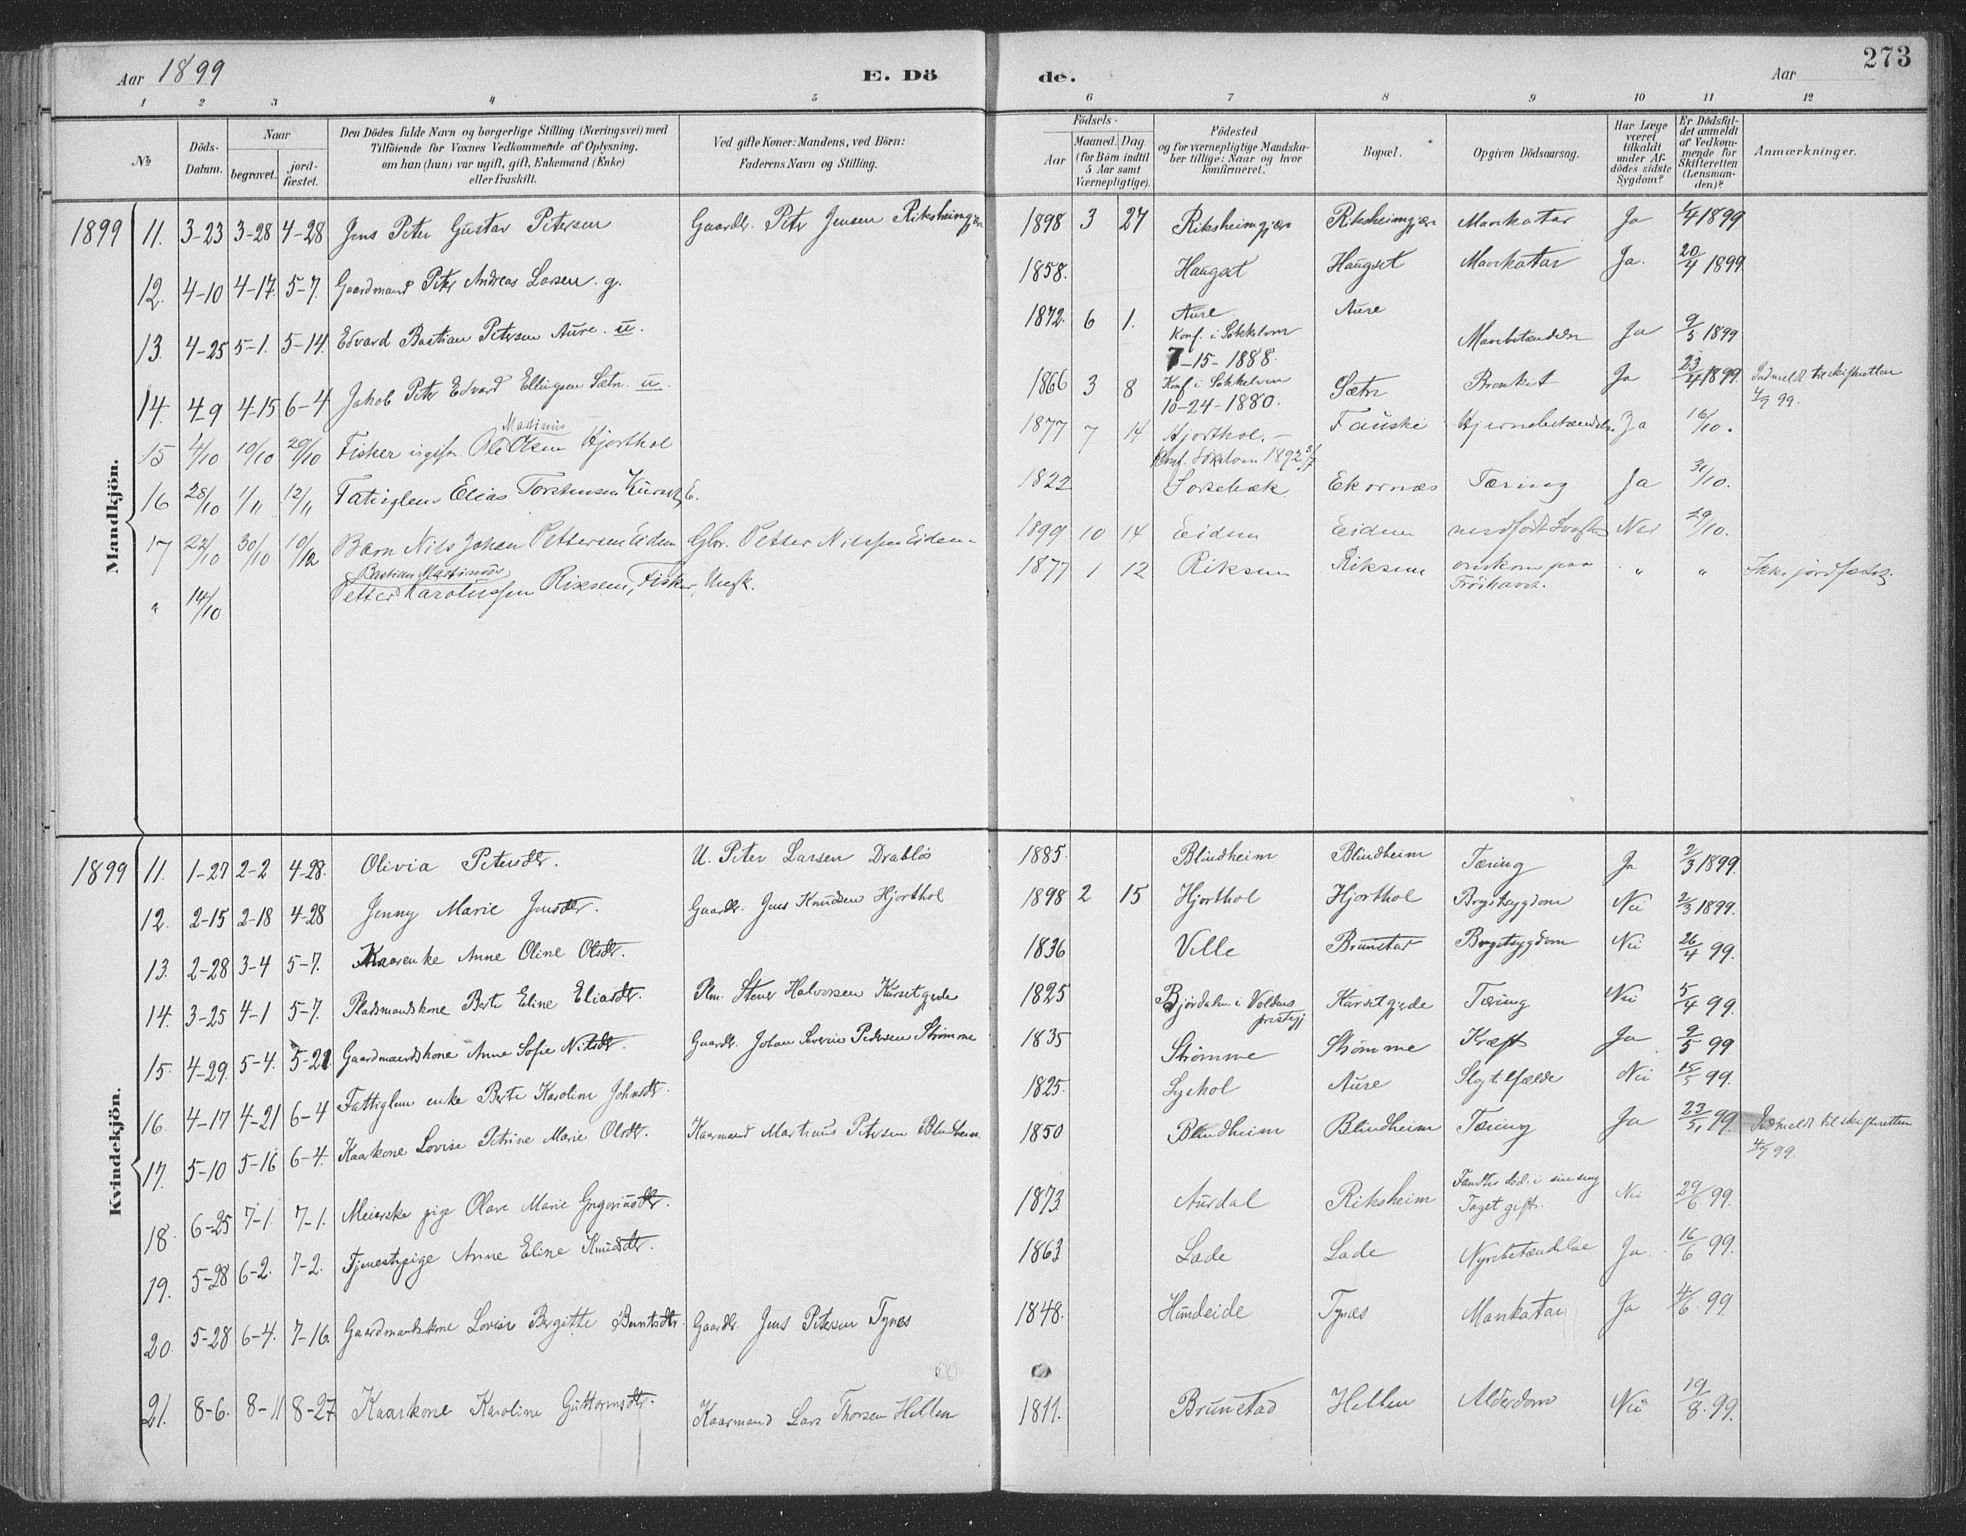 Aar 1899 E. Dö de. Aar 273
1 2 3 4 5 6 7 8 9 10 11 12
№
Döds-Datum.
Naar
begravet.
jord-fæstet.
Den Dödes fulde Navn og borgerlige Stilling (Næringsvei) med
Tilföiende for Voxnes Vedkommende af Oplysning,
om han (hun) var ugift, gift, Enkemand (Enke)
eller fraskilt.
Ved gifte Koner: Mandens, ved Börn:
Faderens Navn og Stilling.
Födsels-
Aar
Maaned. Dag.
(for Börn indtil
5 Aar samt
Værnepligtige).
Födested
og for værnepligtige Mandska-
ber tillige: Naar og hvor
konfirmeret.
Bopæl.
Opgiven Dödsaarsag.
Har Læge
været
tilkaldt
under Af-
dödes sidste
Sygdom?
Er Dödsfal-
det anmeldt
af Vedkom-
mende for
Skifteretten
(Lensman-
den)?
Anmærkninger.
Mandkjön.
1899 11. 3-23 3-28 4-28 Jens Peter Gustav Petersen Gaardbr. Peter Jensen Riksheimgjær 1898 3 27 Riksheimgjær Riksheimgjær Mavekatar Ja 1/4 1899
12. 4-10 4-17. 5-7. Gaardmand Peter Andreas Larsen. g. 1858. Haugset Haugset Mavekatar Ja. 20/4 1899
13. 4-25 5-1. 5-14. Edvard Bastian Petersen Aure. u. 1872. 6 1. Aure Konf. i Søkkelven 7-15-1888. Aure Mavebetændelse Ja 9/5 1899
14. 4-9 4-15 6-4 Jakob Peter Edvard Ellingsen Sætre. u. 1866 3 8 Konf. i Søkkelven 10-24-1880. Sætre Bronkit Ja 23/4 1899. Indmeldt til skifteretten 4/9 99.
15 4/10 10/10 29/10 Fisker ugift Ole Martinus Olsen Hjorthol 1877 7 14 Hjorthol. Konf. Søkelven 1892 Fauske Hjernebetændelse Ja 16/10.
16 28/10 1/11 12/11 Fatiglem Elias Torstensen Kurset, E. 1822 Sorsebæk Ekornæs Tæring Ja 31/10.
17 22/10 30/10 10/12 Barn Nils Johan Pettersen Eidem Gbr. Petter Nilssen Eidem 1899 10 14 Eidem Eidem medfødt Svaghed Nei 29/10.
" 14/10 Petter Bastian Martinus Karolussen Riksem, Fisker, Ungk. 1877 1 12 Riksem Riksem omkom paa Frøihavet. " " Ikke jordfæstet.
Kvindekjön.
1899 11. 1-27 2-2 4-28. Olivia Petersdtr. U. Peter Larsen Drabløs 1885. Blindheim Blindheim Tæring Ja 2/3 1899.
12. 2-15 2-18 4-28 Jenny Marie Jensdtr. Gaardbr. Jens Knudsen Hjorthol 1898 2 15 Hjorthol Hjorthol Brystsygdom Nei 2/3 1899.
13. 2-28 3-4 5-7. Kaarenke Anne Oline Olsdtr. 1836 Velle Brunstad Brystsygdom Nei 26/4 99.
14. 3-25 4-1 5-7. Pladsmandskone Berte Eline Eliasdtr. Plm. Stener Halvorsen Kursetgjede 1825 Bjørdalen i Voldens prestegj Kursetgjede Tæring Nei 5/4 99.
15. 4-29. 5-4. 5-21 Gaardmandskone Anne Sofie Nilsdtr. Gaardbr. Johan Severin Pedersen Strømme 1835 Strømme Strømme Kræft Ja 9/5 99
16. 4-17 4-21 6-4 Fattiglem enke Berte Karoline Johnsdtr. 1825. Lyshol Aure Slagtilfælde Nei 15/5 99.
17. 5-10 5-16 6-4. Kaarkone Lovise Petrine Marie Olsdtr. Kaarmand Martinus Petersen Blindheim. 1850 Blindheim Blindheim Tæring Ja 23/5 99. Indmeldt til skifteretten 4/9 99.
18. 6-25 7-1. 7-1. Meierske pige Olave Marie Gregoriusdtr. 1873. Aursdal Riksheim Fandtes død i sin seng Taget gift. Nei 29/6 99.
19. 5-28 6-2. 7-2. Tjenestepige Anne Eline Knudsdtr. 1863 Lade Lade Nyrebetændelse Ja. 16/6 99.
20. 5-28 6-4. 7-16. Gaardmandskone Lovise Bergitte Berntsdtr. Gaardbr. Jens Petersen Tynes 1848. Hundeide Tynes Mavekatar Ja 4/6. 99
21. 8-6. 8-11 8-27 Kaarkone Karoline Guttormsdtr. Kaarmand Lars Thorsen Hellen 1811. Brunstad Hellen Alderdom Nei 19/8. 99.